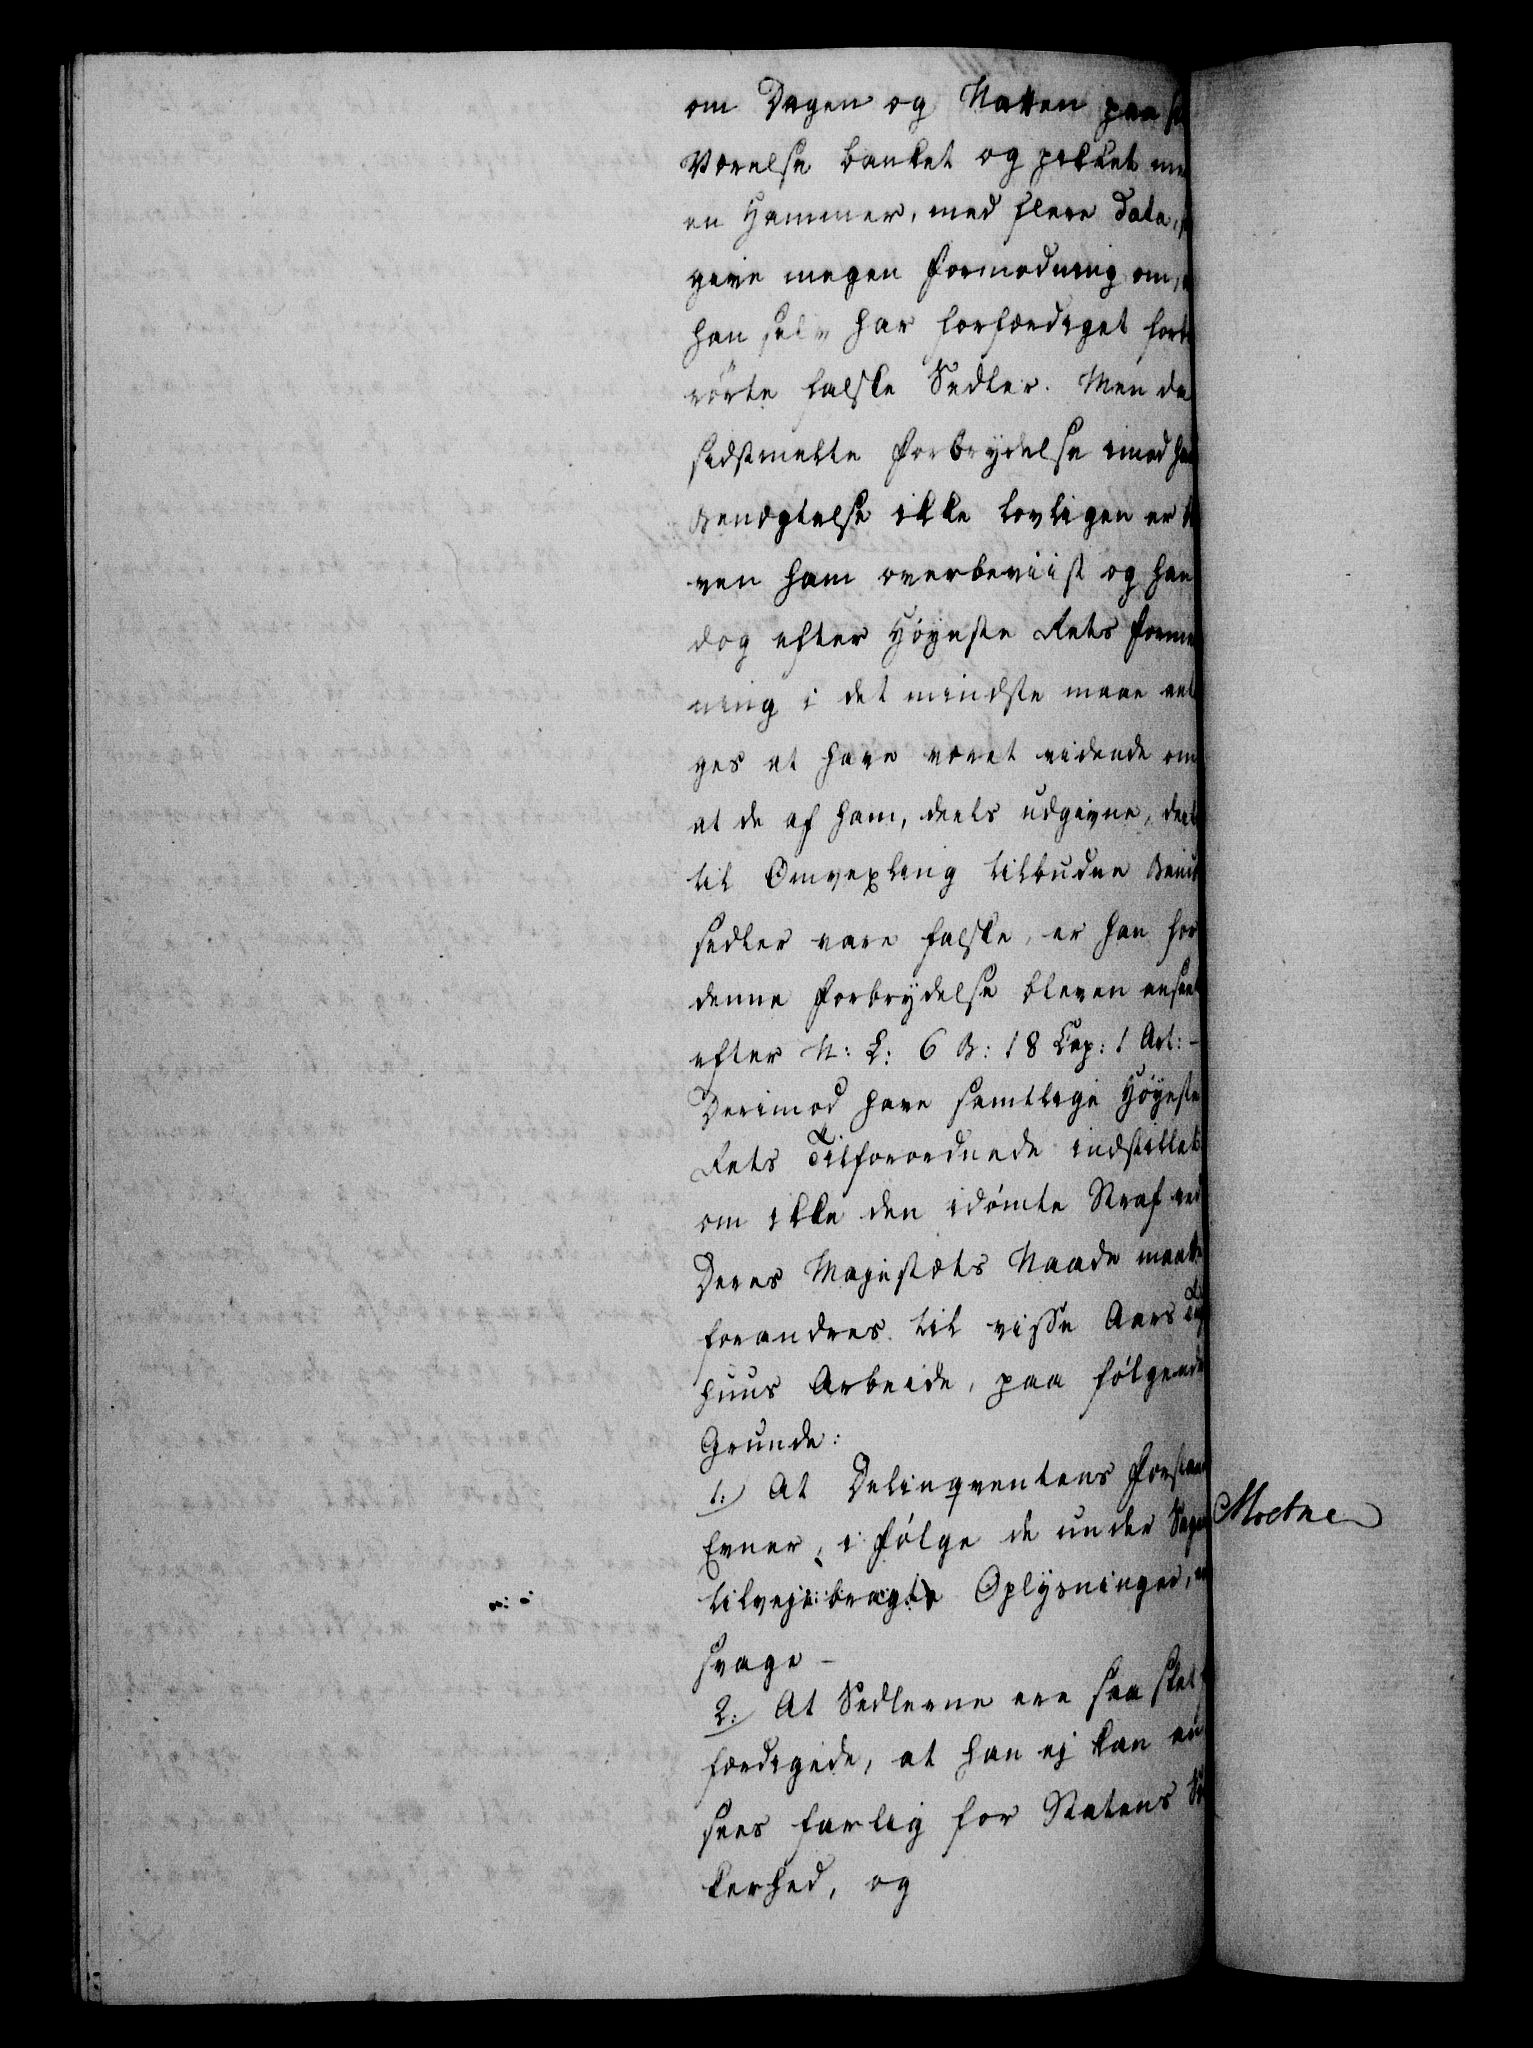 om Dagen og Natten paa
Værelse banket og pikket
en Hammer, med flere Data,
give megen Formodning om,
han selv har forfærdiget
rørte falske Sedler. Men da
sidstmelte Forbrydelse imod
Benægtelse ikke lovligen er
ven ham overbeviist og han
dog efter Høyeste Rets Forme
ning i det mindste maae
ges at have været vidende om
at de af ham, deels udgivne, deels
til Omvexling tilbudne
sedler vare falske, er han for
denne Forbrydelse bleven anseet
efter N: L: 6 B: 18 Cap: 1 Art: -
Derimod have samtlige Høyeste
Rets Tilforordnede indstillet
om ikke den idømte Straf ved
Deres Majestæts Naade maatte
forandres til visse Aars
huus Arbeide, paa følgende
Grunde:
1:) At Delinqventens
Evner, i Følge de under
tilvejebragte Oplysninger,
svage -
2:) At Sedlerne ere saa
færdigede, at han ej kan
sees farlig for Statens
kerhed, og